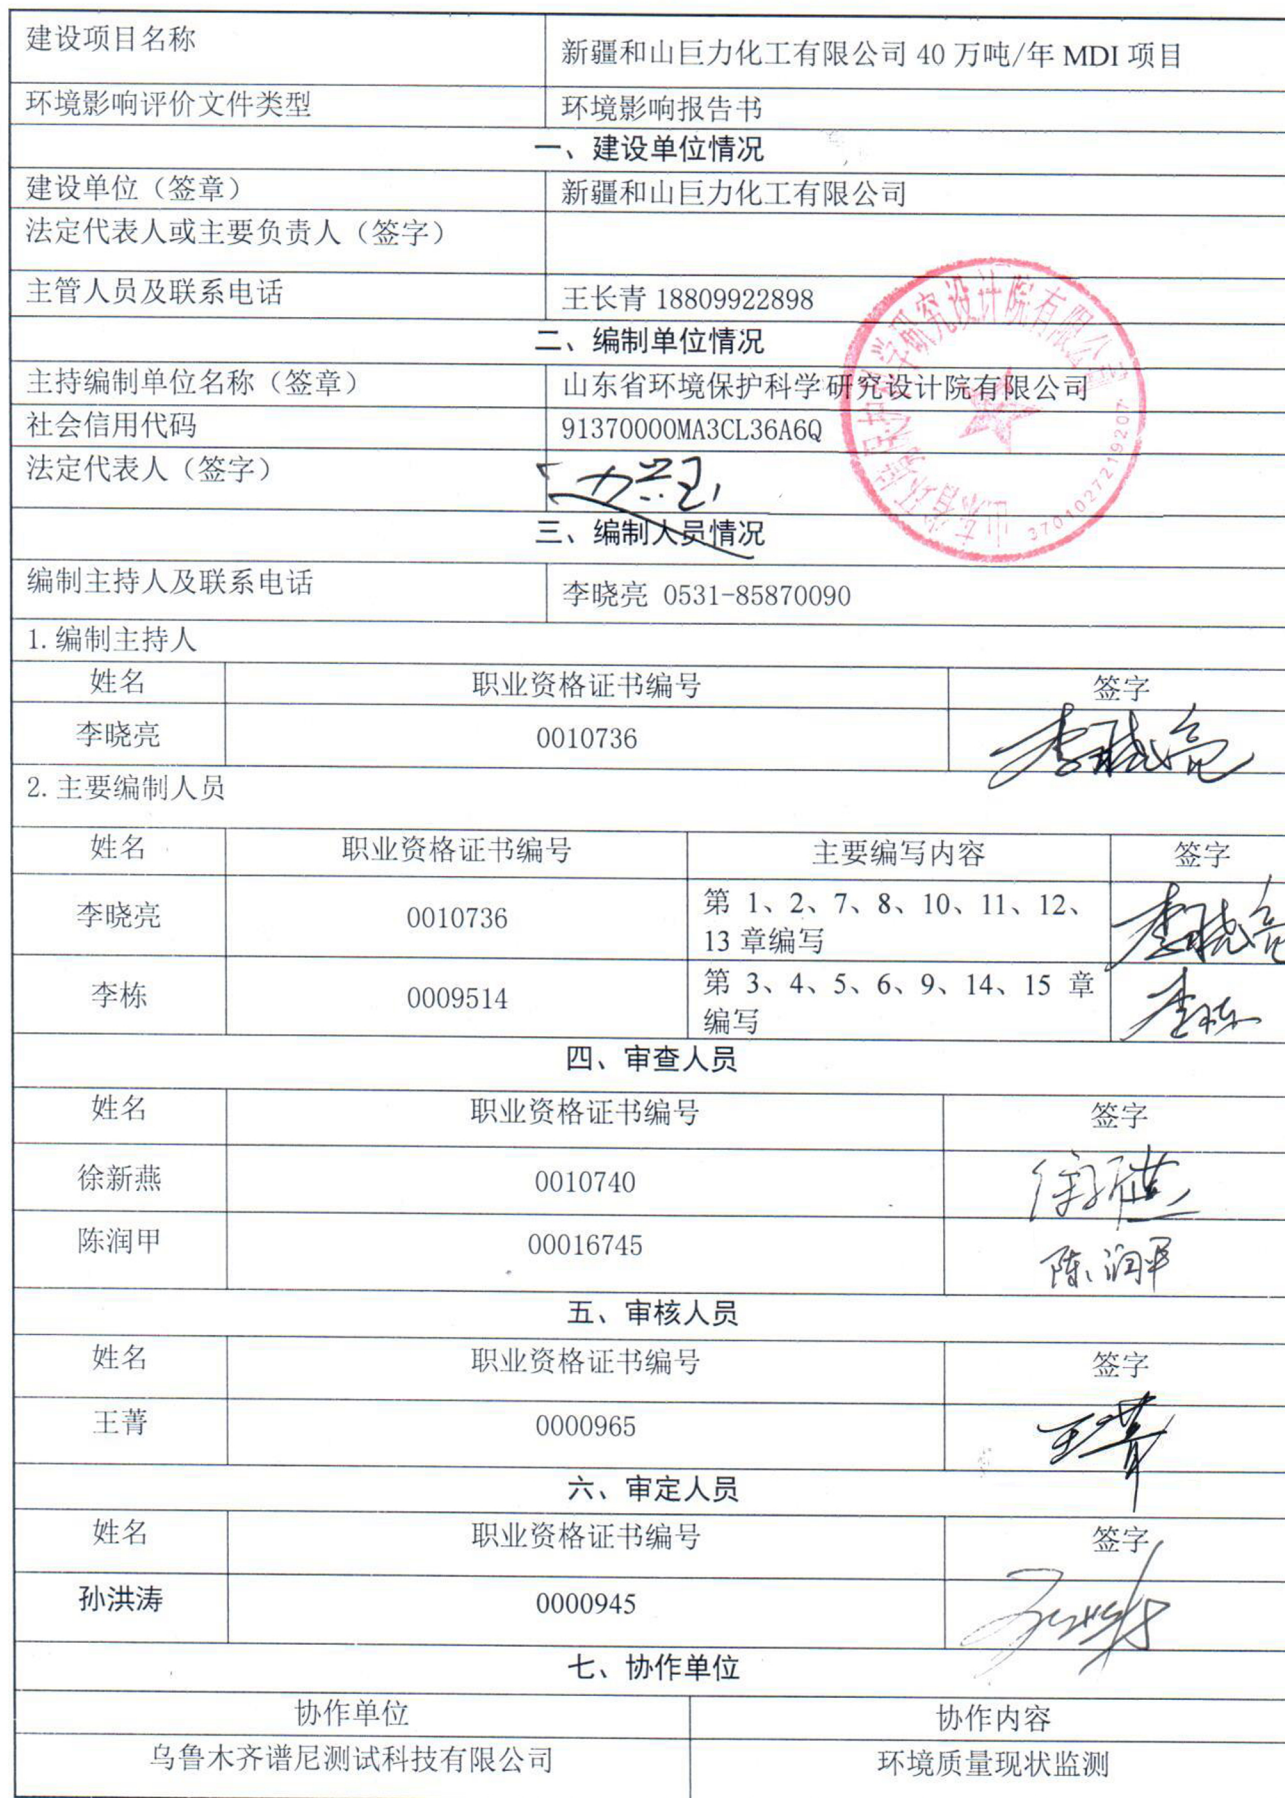 建设项目名称
新疆和山巨力化工有限公司 40 万吨/年 MDI 项目
环境影响评价文件类型
环境影响报告书
一、建设单位情况
建设单位（签章）
新疆和山巨力化工有限公司
法定代表人或主要负责人（签字）
主管人员及联系电话
王长青 18809922898
二、编制单位情况
主持编制单位名称（签章）
山东省环境保护科学研究设计院有限公司
社会信用代码
91370000MA3CL36A6Q
法定代表人（签字）
山东省环境保护科学研究设计院有限公司
3701027219207
三、编制人员情况
编制主持人及联系电话
李晓亮 0531-85870090
1.编制主持人
姓名 职业资格证书编号 签字
李晓亮 0010736 李晓亮
2.主要编制人员
姓名 职业资格证书编号 主要编写内容 签字
李晓亮 0010736 第 1、2、7、8、10、11、12、
13 章编写 李晓亮
李栋 0009514 第 3、4、5、6、9、14、15 章
编写 李栋
四、审查人员
姓名 职业资格证书编号 签字
徐新燕 0010740 徐新燕
陈润甲 00016745 陈润甲
五、审核人员
姓名 职业资格证书编号 签字
王菁 0000965 王菁
六、审定人员
姓名 职业资格证书编号 签字
孙洪涛 0000945
七、协作单位
协作单位 协作内容
乌鲁木齐谱尼测试科技有限公司 环境质量现状监测